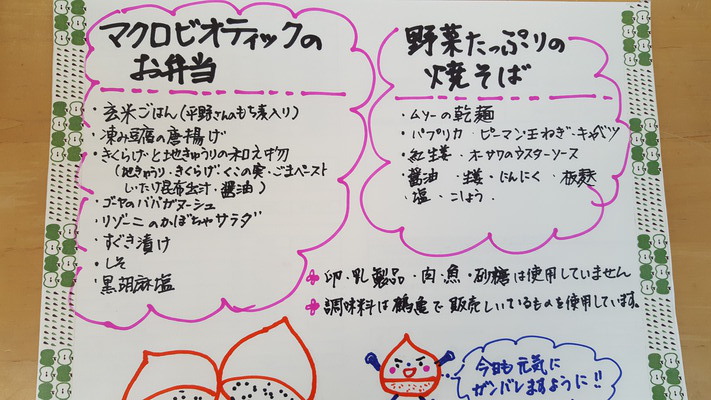 マクロビオティックの
お弁当
・玄米ごはん(平野さんのもち麦入り)
・凍み豆腐の唐揚げ
・きくらげと地きゅうりの和え物
(地きゅうり・きくらげ・くこの実・ごまペースト
しいたけ昆布出汁・醤油)
・ゴーヤのババガヌーシュ
・リゾーニのかぼちゃサラダ
・すぐき漬け
・しそ
・黒胡麻塩
野菜たっぷりの
焼そば
・ムソーの乾麺
・パプリカ・ピーマン・玉ねぎ・キャベツ
・紅生姜・オーサワのウスターソース
・醤油・生姜・にんにく・板麩
・塩・こしょう
卵・乳製品・肉・魚・砂糖は使用していません
調味料は鶴亀で販売しいているものを使用しています。
今日も元気に
ガンバレますように!!